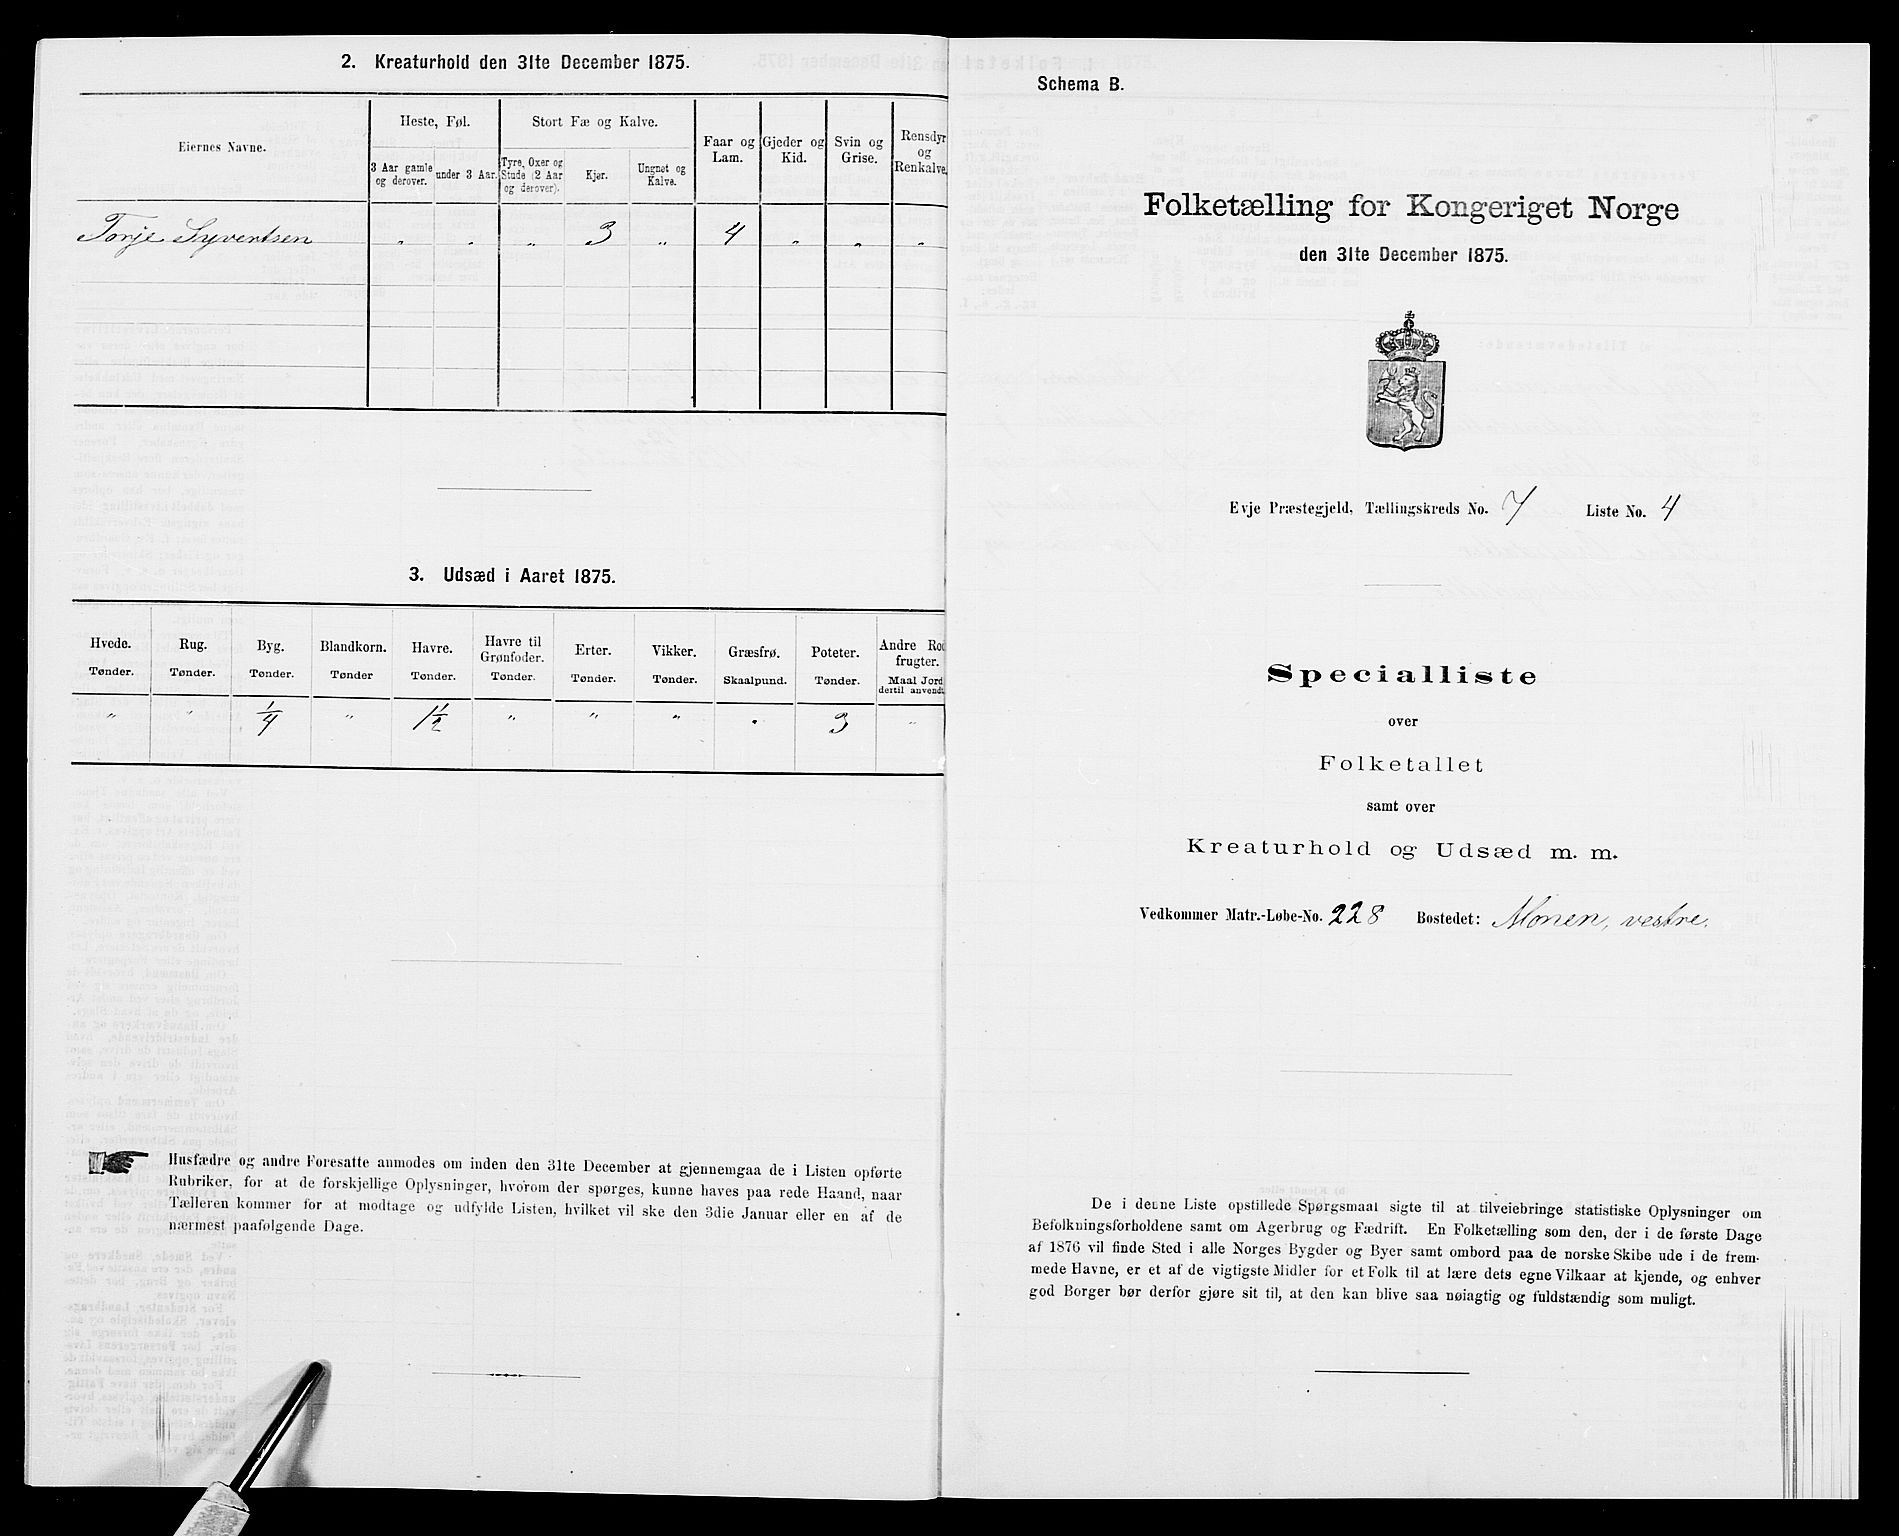 2. Kreaturhold den 31te December 1875.
Eiernes Navne.
Heste, Føl.
Stort Fæ og Kalve.
Faar og Lam.
Gjeder og Kid.
Svin og Grise.
Rensdyr og Renkalve.
3 Aar gamle og derover.
under 3 Aar.
Tyre, Oxer og Stude (2 Aar og derover).
Kjør.
Ungnøt og Kalve.
Torje Syvertsen " " " 3 " 4 " " "
3. Udsæd i Aaret 1875.
Hvede. Tønder.
Rug. Tønder.
Byg. Tønder.
Blandkorn. Tønder
Havre. Tønder.
Havre til Grønfoder. Tønder.
Erter. Tønder.
Vikker. Tønder.
Græsfrø. Skaalpund.
Poteter. Tønder.
Andre Rod frugter. Maal Jord dertil anvendt.
" " 1/4 " 1 1/2 " " " " 3 "
Husfædre og andre Foresatte anmodes om inden den 31te December at gjennemgaa de i Listen opførte
Rubriker, for at de forskjellige Oplysninger, hvorom der spørges, kunne haves paa rede Haand, naar
Tælleren kommer for at modtage og udfylde Listen, hvilket vil ske den 3die Januar eller en af de
nærmest paafølgende Dage.
Schema B.
Folketælling for Kongeriget Norge
den 31te December 1875.
Evje Præstegjeld, Tællingskreds No. 7 Liste No. 4
Specialliste
over
Folketallet
samt over
Kreaturhold og Udsæd m. m.
Vedkommer Matr.-Løbe-No. 228 Bostedet: Monen, vestre.
De i denne Liste opstillede Spørgsmaal sigte til at tilveiebringe statistiske Oplysninger om
Befolkningsforholdene samt om Agerbrug og Fædrift. En Folketælling som den, der i de første Dage
af 1876 vil finde Sted i alle Norges Bygder og Byer samt ombord paa de norske Skibe ude i de frem-
mede Havne, er et af de vigtigste Midler for et Folk til at lære dets egne Vilkaar at kjende, og enhver
god Borger bør derfor gjøre sit til, at den kan blive saa nøiagtig og fuldstændig som muligt.